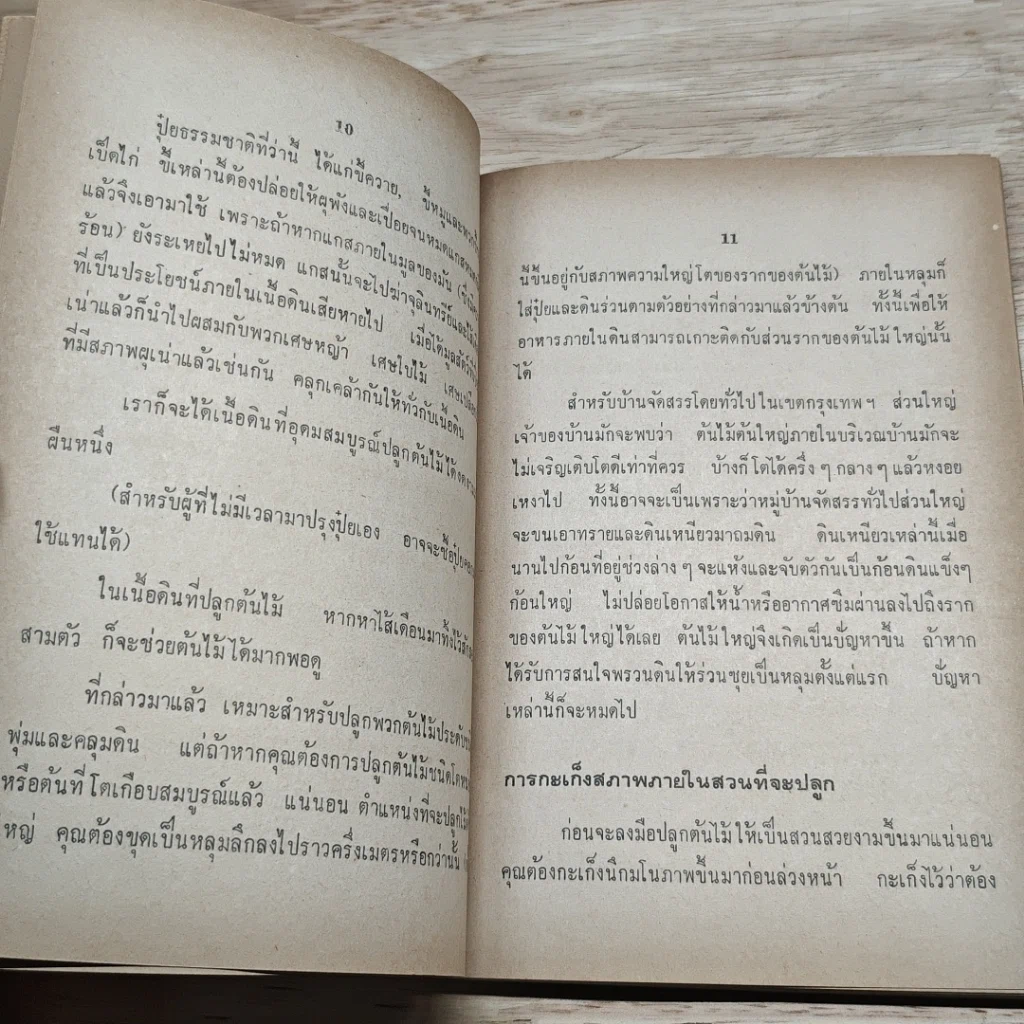 10
ปุ๋ยธรรมชาติที่ว่านี้ ได้แก่ขี้ควาย, ขี้หมูและพวกขี้
เป็ดไก่ ขี้เหล่านี้ต้องปล่อยให้ผุพังและเปื่อยจนหมดแกส
แล้วจึงเอามาใช้ เพราะถ้าหากแกสภายในมูลของมัน
ร้อน) ยังระเหยไปไม่หมด แกสนั้นจะไปฆ่าจุลินทรีย์และ
ที่เป็นประโยชน์ภายในเนื้อดินเสียหายไป เมื่อได้มูลสัตว์
เน่าแล้วก็นำไปผสมกับพวกเศษหญ้า เศษใบไม้
ที่มีสภาพผุเน่าแล้วเช่นกัน คลุกเคล้ากันให้ทั่วกับเนื้อดิน
เราก็จะได้เนื้อดินที่อุดมสมบูรณ์ปลูกต้นไม้ได้
ผืนหนึ่ง
(สำหรับผู้ที่ไม่มีเวลามาปรุงปุ๋ยเอง อาจจะซื้อปุ๋ย
ใช้แทนได้)
ในเนื้อดินที่ปลูกต้นไม้ หากหาไส้เดือนมาทิ้งไว้
สามตัว ก็จะช่วยต้นไม้ได้มากพอดู
ที่กล่าวมาแล้ว เหมาะสำหรับปลูกพวกต้นไม้ประดับ
พุ่มและคลุมดิน แต่ถ้าหากคุณต้องการปลูกต้นไม้ชนิดโต
หรือต้นที่โตเกือบสมบูรณ์แล้ว แน่นอน ตำแหน่งที่จะปลูก
หญ่ คุณต้องขุดเป็นหลุมลึกลงไปราวครึ่งเมตรหรือกว่านั้น
11
นี้ขึ้นอยู่กับสภาพความใหญ่โตของรากของต้นไม้) ภายในหลุมก็
ใส่ปุ๋ยและดินร่วนตามตัวอย่างที่กล่าวมาแล้วข้างต้น ทั้งนี้เพื่อให้
อาหารภายในดินสามารถเกาะติดกับส่วนรากของต้นไม้ใหญ่นั้น
ได้
สำหรับบ้านจัดสรรโดยทั่วไปในเขตกรุงเทพฯ ส่วนใหญ่
เจ้าของบ้านมักจะพบว่า ต้นไม้ต้นใหญ่ภายในบริเวณบ้านมักจะ
ไม่เจริญเติบโตดีเท่าที่ควร บ้างก็โตได้ครึ่ง ๆ กลาง ๆ แล้วหงอย
เหงาไป ทั้งนี้อาจจะเป็นเพราะว่าหมู่บ้านจัดสรรทั่วไปส่วนใหญ่
จะขนเอาทรายและดินเหนียวมาถมดิน ดินเหนียวเหล่านี้เมื่อ
นานไปก้อนที่อยู่ช่วงล่าง ๆ จะแห้งและจับตัวกันเป็นก้อนดินแข็งๆ
ก้อนใหญ่ ไม่ปล่อยโอกาสให้น้ำหรืออากาศซึมผ่านลงไปถึงราก
ของต้นไม้ใหญ่ได้เลย ต้นไม้ใหญ่จึงเกิดเป็นปัญหาขึ้น ถ้าหาก
ได้รับการสนใจพรวนดินให้ร่วนซุยเป็นหลุมตั้งแต่แรก ปัญหา
เหล่านี้ก็จะหมดไป
การกะเก็งสภาพภายในสวนที่จะปลูก
ก่อนจะลงมือปลูกต้นไม้ให้เป็นสวนสวยงามขึ้นมาแน่นอน
คุณต้องกะเก็งนิกมโนภาพขึ้นมาก่อนล่วงหน้า กะเก็งไว้ว่าต้อง